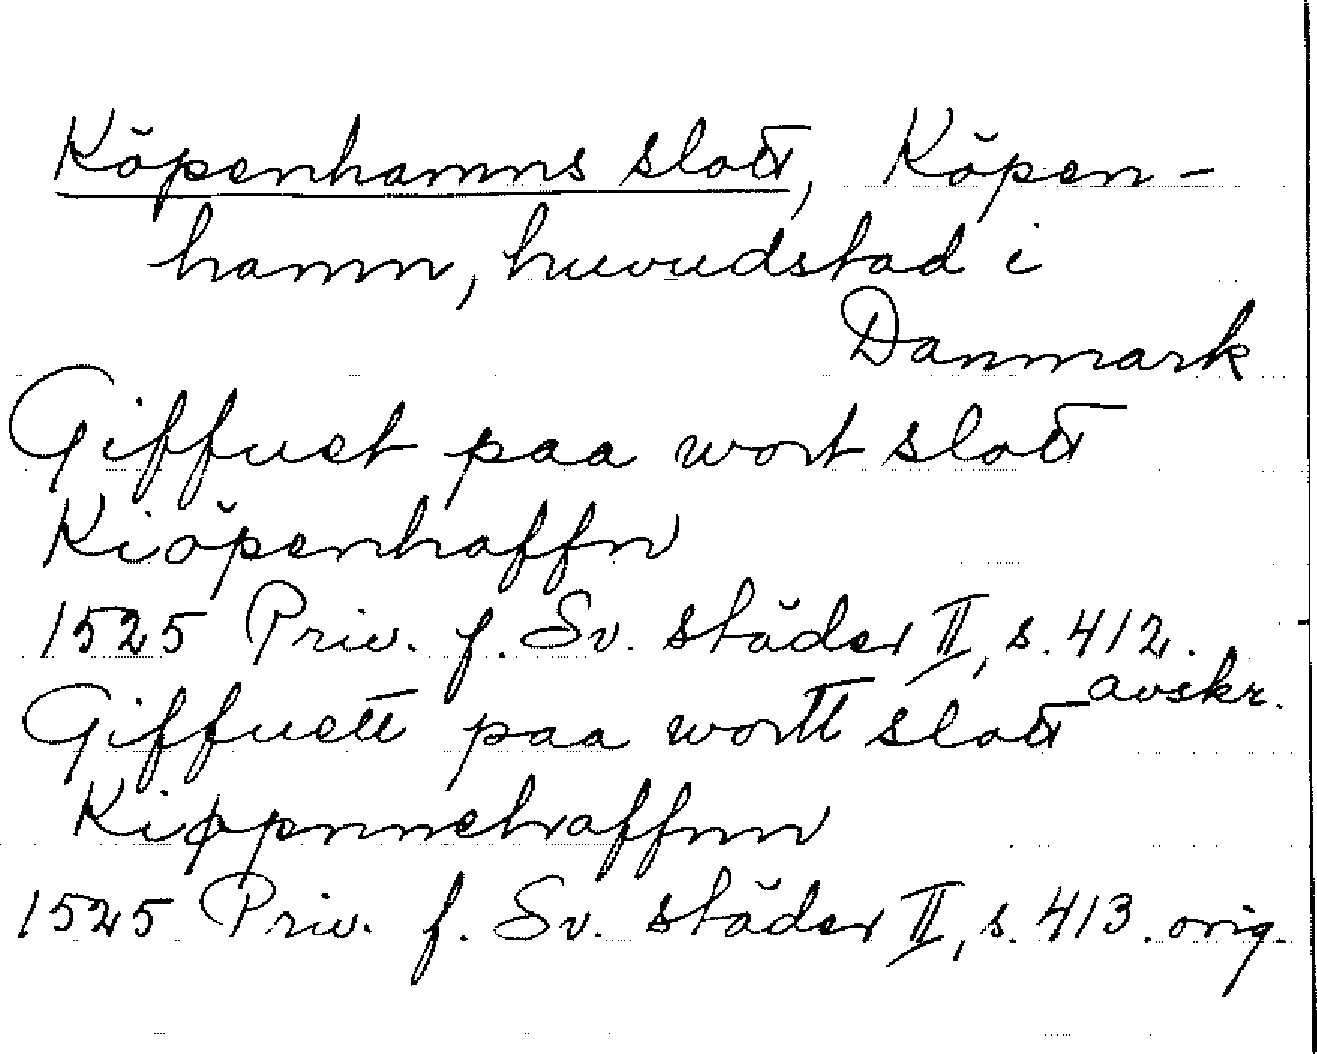 Köpenhamns slott, Köpen-
hamn, huvudstad i
Danmark
Giffuet paa wort slott
Kiöpenhaffn
1525 Priv. f. Sv. städer II, s. 412.
avskr.
Giffuett paa wortt slott
Kiøpnnehaffnn
1525 Priv. f. Sv. städer II, s. 413. orig.